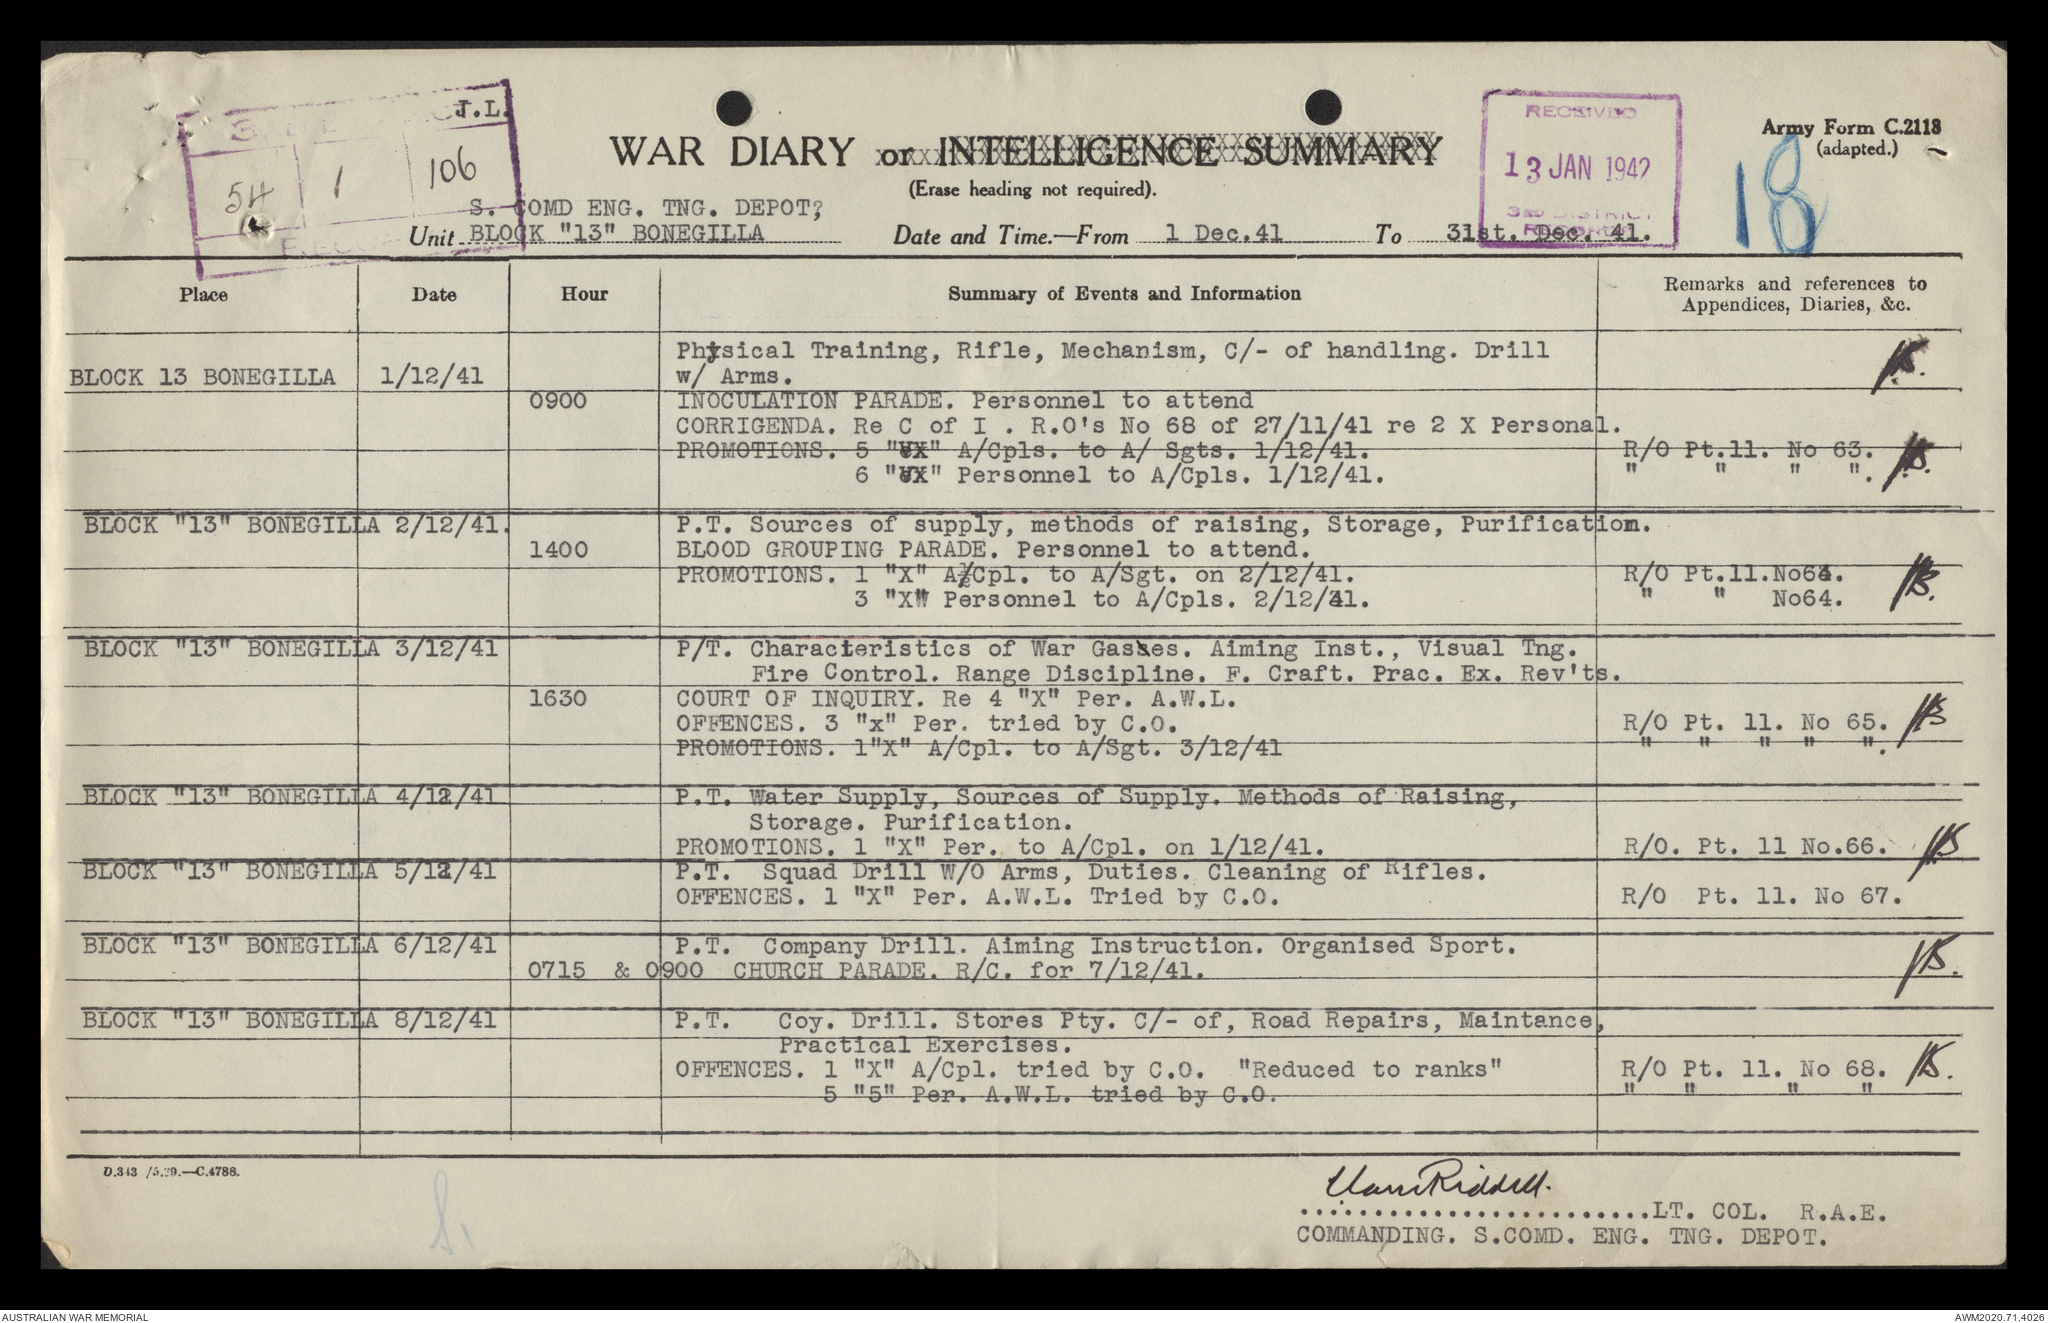 J.L.
54 1 106
WAR DIARY or INTELLIGENCE SUMMARY
(Erase heading not required).
RECEIVED
13 JAN 1942
3RD DISTRICT
RECORDS
Army Form C.2118
(adapted.)
18
S. COMD ENG. TNG. DEPOT?
Unit BLOCK "13" BONEGILLA Date and Time.—From 1 Dec.41 To 31st. Dec. 41.
Place Date Hour Summary of Events and Information Remarks and references to
Appendices, Diaries, &c.
Physical Training, Rifle, Mechanism, C/- of handling. Drill
BLOCK 13 BONEGILLA 1/12/41 w/ Arms.
0900 INOCULATION PARADE. Personnel to attend
CORRIGENDA. Re C of I . R.O's No 68 of 27/11/41 re 2 X Personal.
PROMOTIONS. 5 "VX" A/Cpls. to A/ Sgts. 1/12/41. R/O Pt.11. No 63.
6 "VX" Personnel to A/Cpls. 1/12/41. " " " ".
BLOCK "13" BONEGILLA 2/12/41. P.T. Sources of supply, methods of raising, Storage, Purification.
1400 BLOOD GROUPING PARADE. Personnel to attend.
PROMOTIONS. 1 "X" A/Cpl. to A/Sgt. on 2/12/41. R/O Pt.11.No64.
3 "X" Personnel to A/Cpls. 2/12/41. " " No64.
BLOCK "13" BONEGILLA 3/12/41 P/T. Characteristics of War Gasses. Aiming Inst., Visual Tng.
Fire Control. Range Discipline. F. Craft. Prac. Ex. Rev'ts.
1630 COURT OF INQUIRY. Re 4 "X" Per. A.W.L.
OFFENCES. 3 "x" Per. tried by C.O. R/O Pt. 11. No 65.
PROMOTIONS. 1"X" A/Cpl. to A/Sgt. 3/12/41 " " " " ".
BLOCK "13" BONEGILLA 4/12/41 P.T. Water Supply, Sources of Supply. Methods of Raising,
Storage. Purification.
PROMOTIONS. 1 "X" Per. to A/Cpl. on 1/12/41. R/O. Pt. 11 No.66.
BLOCK "13" BONEGILLA 5/12/41 P.T. Squad Drill W/O Arms, Duties. Cleaning of Rifles.
OFFENCES. 1 "X" Per. A.W.L. Tried by C.O. R/O Pt. 11. No 67.
BLOCK "13" BONEGILLA 6/12/41 P.T. Company Drill. Aiming Instruction. Organised Sport.
0715 & 0900 CHURCH PARADE. R/C. for 7/12/41.
BLOCK "13" BONEGILLA 8/12/41 P.T. Coy. Drill. Stores Pty. C/- of, Road Repairs, Maintance,
Practical Exercises.
OFFENCES. 1 "X" A/Cpl. tried by C.O. "Reduced to ranks" R/O Pt. 11. No 68.
5 "5" Per. A.W.L. tried by C.O. " " " "
D.343 /5.39.—C.4788.
Riddell.
........................LT. COL. R.A.E.
COMMANDING. S.COMD. ENG. TNG. DEPOT.
AUSTRALIAN WAR MEMORIAL AWM2020.71.4026